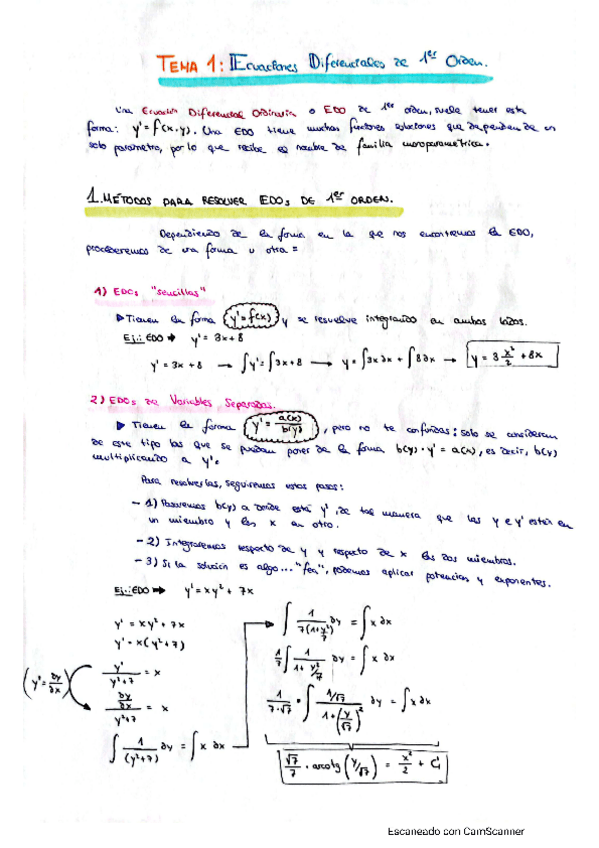 TEMA 1: Ecuaciones Diferenciales de 1er Orden.
Una Ecuación Diferencial Ordinaria o EDO de 1er orden, suele tener esta
forma: y' = f(x,y). Una EDO tiene muchas funciones soluciones que dependen de un
solo parámetro, por lo que recibe el nombre de familia monoparamétrica.
1. MÉTODOS PARA RESOLVER EDOs DE 1er ORDEN.
Dependiendo de la forma en la que nos encontremos la EDO,
procederemos de una forma u otra =
1) EDOs "sencillas"
▶ Tienen la forma y' = f(x) y se resuelve integrando en ambos lados.
Ej.: EDO → y' = 3x + 8
y' = 3x + 8 → ∫y' = ∫3x + 8 → y = ∫3x dx + ∫8 dx → y = 3 x²/2 + 8x
2) EDOs de Variables Separadas.
▶ Tienen la forma y' = a(x)/b(y), pero no te confundas: solo se consideran
de este tipo las que se puedan poner de la forma b(y) · y' = a(x), es decir, b(y)
multiplicando a y'.
Para resolverlas, seguiremos estos pasos:
- 1) Pasaremos b(y) a donde está y', de tal manera que las y e y' estén en
un miembro y las x en otro.
- 2) Integraremos respecto de y y respecto de x los dos miembros.
- 3) Si la solución es algo... "fea", podemos aplicar potencias y exponentes.
Ej.: EDO → y' = xy² + 7x
y' = xy² + 7x
y' = x(y² + 7)
y'/(y²+7) = x
(y' = dy/dx)
(dy/dx)/(y²+7) = x
∫ 1/(y²+7) dy = ∫ x dx
∫ 1/(7(1+y²/7)) dy = ∫ x dx
1/7 ∫ 1/(1+y²/7) dy = ∫ x dx
1/(7·√7) · ∫ (1/√7)/(1+(y/√7)²) dy = ∫ x dx
√7/7 · arcotg (y/√7) = x²/2 + C
Escaneado con CamScanner